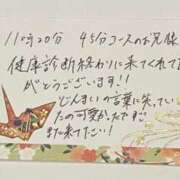 11時30分 45分コースのお兄様
健康診断終わりに来てくれて
どうございます!!
どんまいの言葉に笑ってい
たの可愛かったです
また来てたい!